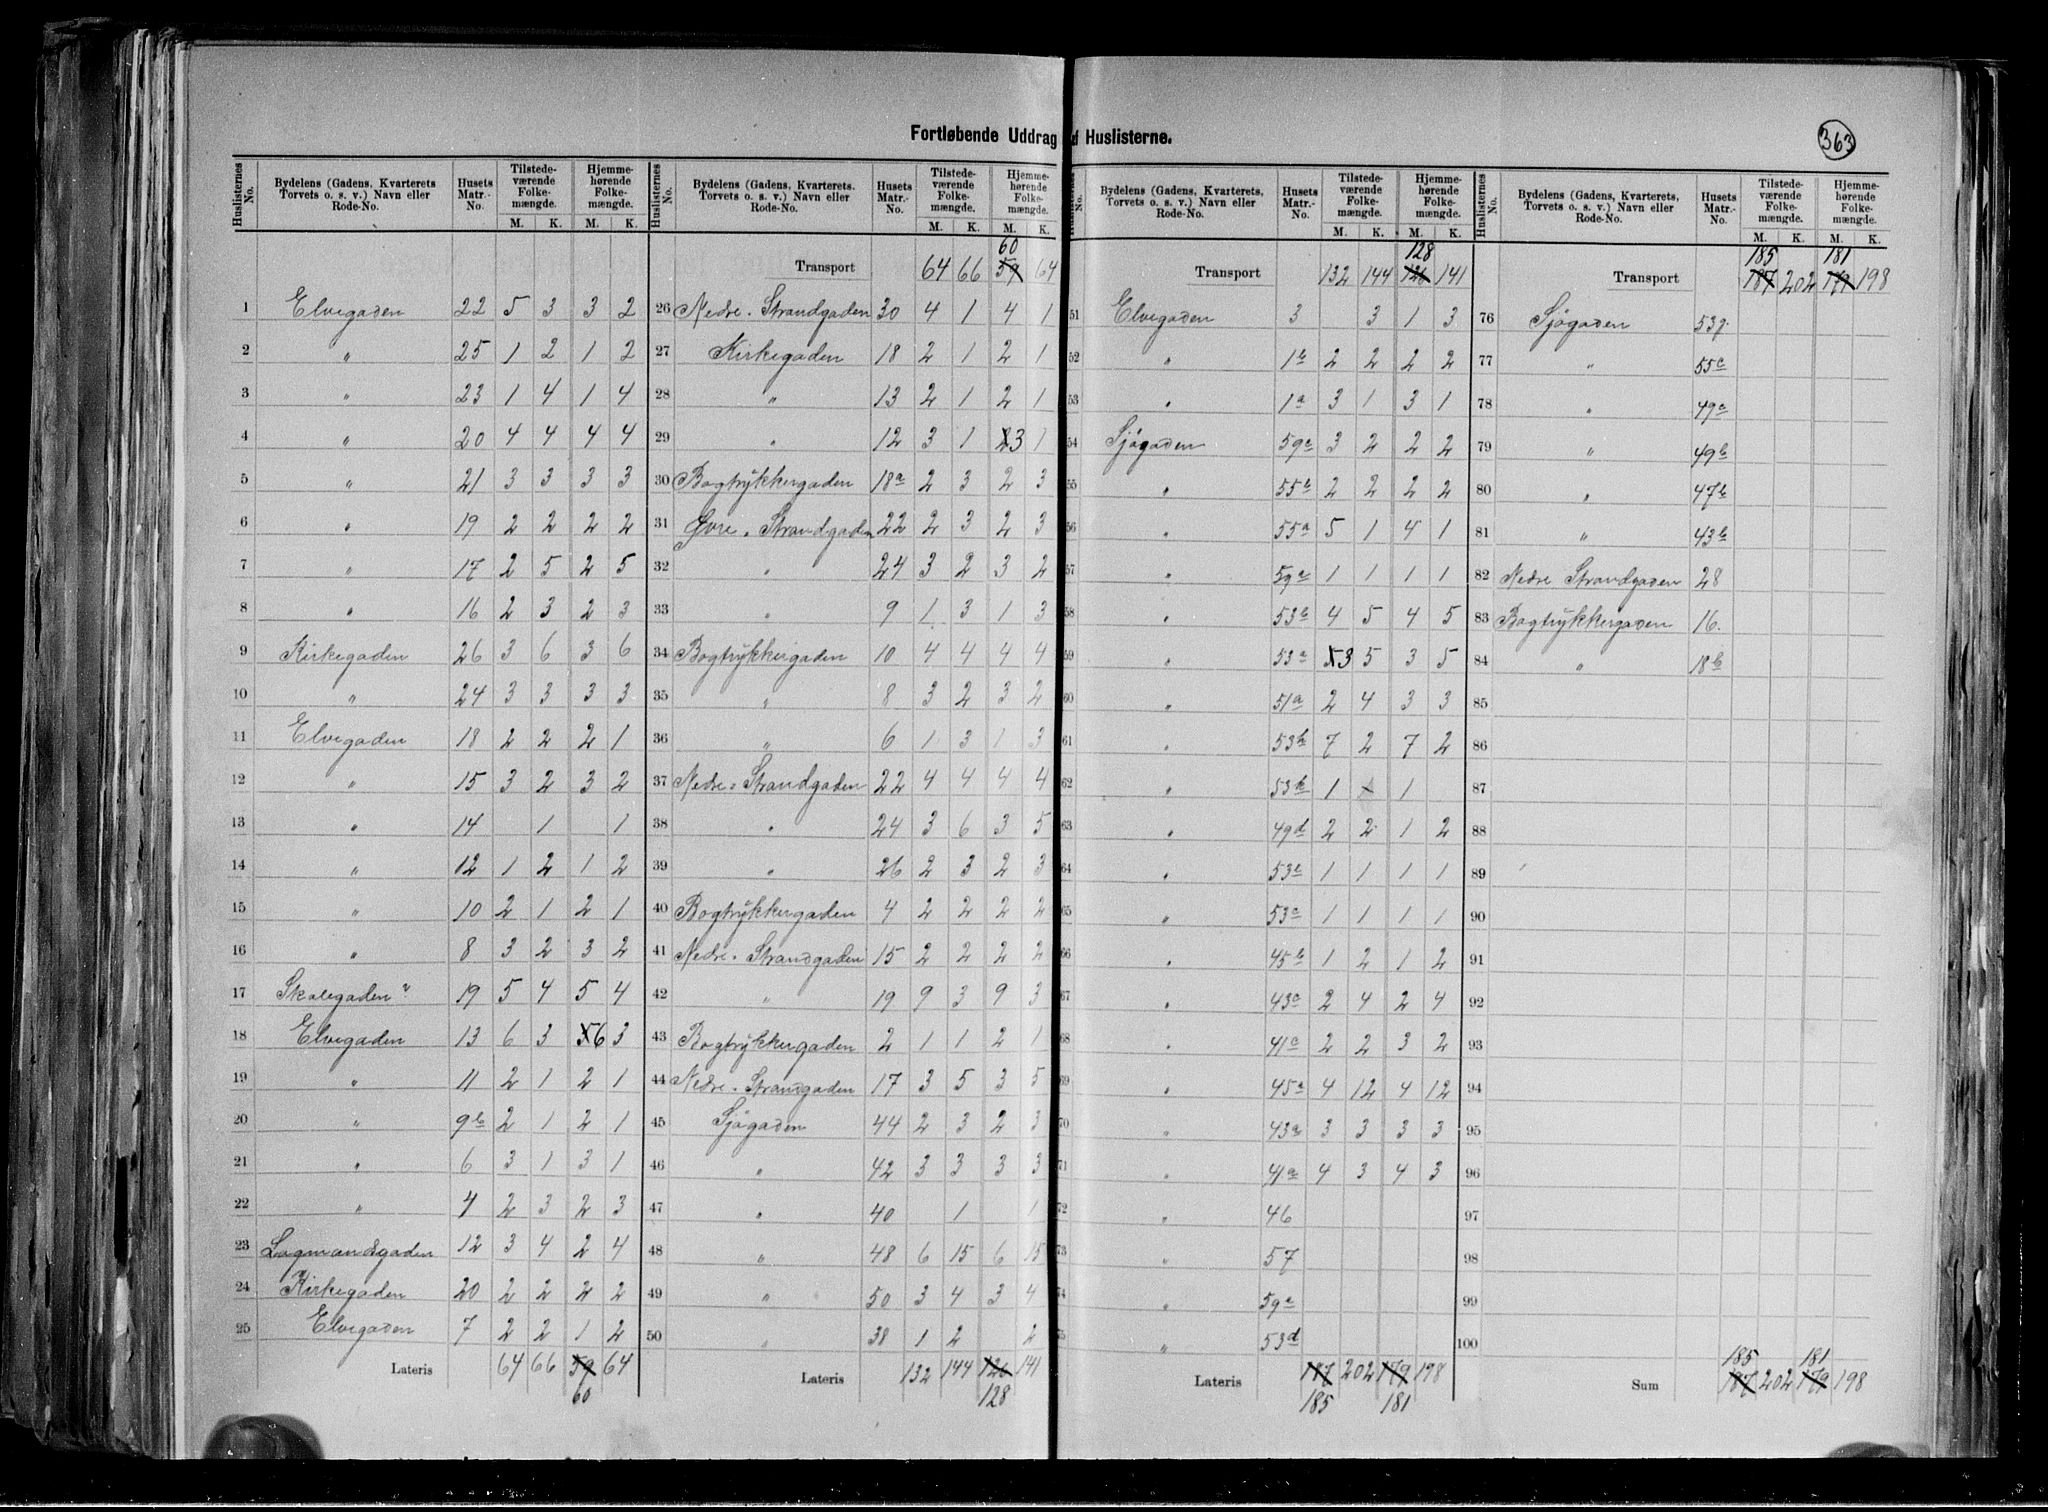 363
Fortløbende Uddrag af Huslisterne.
Huslisternes No. | Bydelens (Gadens, Kvarterets Torvets o. s. v.) Navn eller Rode-No. | Husets Matr.-No. | Tilstede-værende Folke-mængde. M. K. | Hjemme-hørende Folke-mængde. M. K.
1 Elvegaden 22 5 3 3 2
2 " 25 1 2 1 2
3 " 23 1 4 1 4
4 " 20 4 4 4 4
5 " 21 3 3 3 3
6 " 19 2 2 2 2
7 " 17 2 5 2 5
8 " 16 2 3 2 3
9 Kirkegaden 26 3 6 3 6
10 " 24 3 3 3 3
11 Elvegaden 18 2 2 2 1
12 " 15 3 2 3 2
13 " 14 1 1
14 " 12 1 2 1 2
15 " 10 2 1 2 1
16 " 8 3 2 3 2
17 Skolegaden " 19 5 4 5 4
18 Elvegaden 13 6 3 6 3
19 " 11 2 1 2 1
20 " 9b 2 1 2 1
21 " 6 3 1 3 1
22 " 4 2 3 2 3
23 Lagmandsgaden 12 3 4 2 4
24 Kirkegaden 20 2 2 2 2
25 Elvegaden 7 2 2 1 2
Lateris 64 66 59 64
60
Huslisternes No. | Bydelens (Gadens, Kvarterets, Torvets o. s. v.) Navn eller Rode-No. | Husets Matr.-No. | Tilstede-værende Folke-mængde. M. K. | Hjemme-hørende Folke-mængde. M. K.
60
Transport 64 66 59 64
26 Nedre. Strandgaden 30 4 1 4 1
27 Kirkegaden 18 2 1 2 1
28 " 13 2 1 2 1
29 " 12 3 1 2 3 1
30 Bogtrykkergaden 18a 2 3 2 3
31 Øvre. Strandgaden 22 2 3 2 3
32 " 24 3 2 3 2
33 " 9 1 3 1 3
34 Bogtrykkergaden 10 4 4 4 4
35 " 8 3 2 3 2
36 " 6 1 3 1 3
37 Nedre. Strandgaden 22 4 4 4 4
38 " 24 3 6 3 5
39 " 26 2 3 2 3
40 Bogtrykkergaden 4 2 2 2 2
41 Nedre. Strandgaden 15 2 2 2 2
42 " 19 9 3 9 3
43 Bogtrykkergaden 2 1 1 2 1
44 Nedre. Strandgaden 17 3 5 3 5
45 Sjøgaden 44 2 3 2 3
46 " 42 3 3 3 3
47 " 40 1 1
48 " 48 6 15 6 15
49 " 50 3 4 3 4
50 " 38 1 2 2
Lateris 132 144 126 141
128
No. | Bydelens (Gadens, Kvarterets, Torvets o. s. v.) Navn eller Rode-No. | Husets Matr.-No. | Tilstede-værende Folke-mængde. M. K. | Hjemme-hørende Folke-mængde. M. K.
128
Transport 132 144 126 141
51 Elvegaden 3 3 1 3
52 " 1b 2 2 2 2
53 " 1a 3 1 3 1
54 Sjøgaden 59a 3 2 2 2
55 " 55b 2 2 2 2
56 " 55a 5 1 4 1
57 " 59a 1 1 1 1
58 " 53b 4 5 4 5
59 " 53a 3 5 3 5
60 " 51a 2 4 3 3
61 " 53b 7 2 7 2
62 " 53b 1 1
63 " 49d 2 2 1 2
64 " 53c 1 1 1 1
65 " 53a 1 1 1 1
66 " 45b 1 2 1 2
67 " 43a 2 4 2 4
68 " 41a 2 2 3 2
69 " 45a 4 12 4 12
70 " 43a 3 3 3 3
71 " 41a 4 3 4 3
72 " 46
73 " 57
74 " 59a
75 " 53d
Lateris 187 202 179 198
185 181
Huslisternes No. | Bydelens (Gadens, Kvarterets, Torvets o. s. v.) Navn eller Rode-No. | Husets Matr.-No. | Tilstede-værende Folke-mængde. M. K. | Hjemme-hørende Folke-mængde. M. K.
185 181
Transport 187 202 179 198
76 Sjøgaden 53g.
77 " 55c
78 " 49a
79 " 49b
80 " 47b
81 " 43b
82 Nedre Strandgaden 28
83 Bogtrykkergaden 16.
84 " 18b
85
86
87
88
89
90
91
92
93
94
95
96
97
98
99
100
185 181
Sum 187 202 179 198